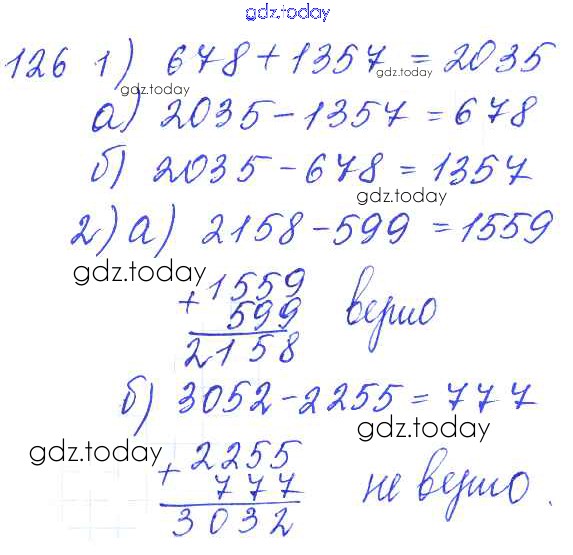 gdz.today
126 1) 678 + 1357 = 2035
gdz.today
gdz.today
а) 2035 - 1357 = 678
б) 2035 - 678 = 1357
gdz.today
2) а) 2158 - 599 = 1559
gdz.today
+ 1559
599
верно
2158
б) 3052 - 2255 = 777
gdz.today
gdz.today
+ 2255
777
не верно.
3032